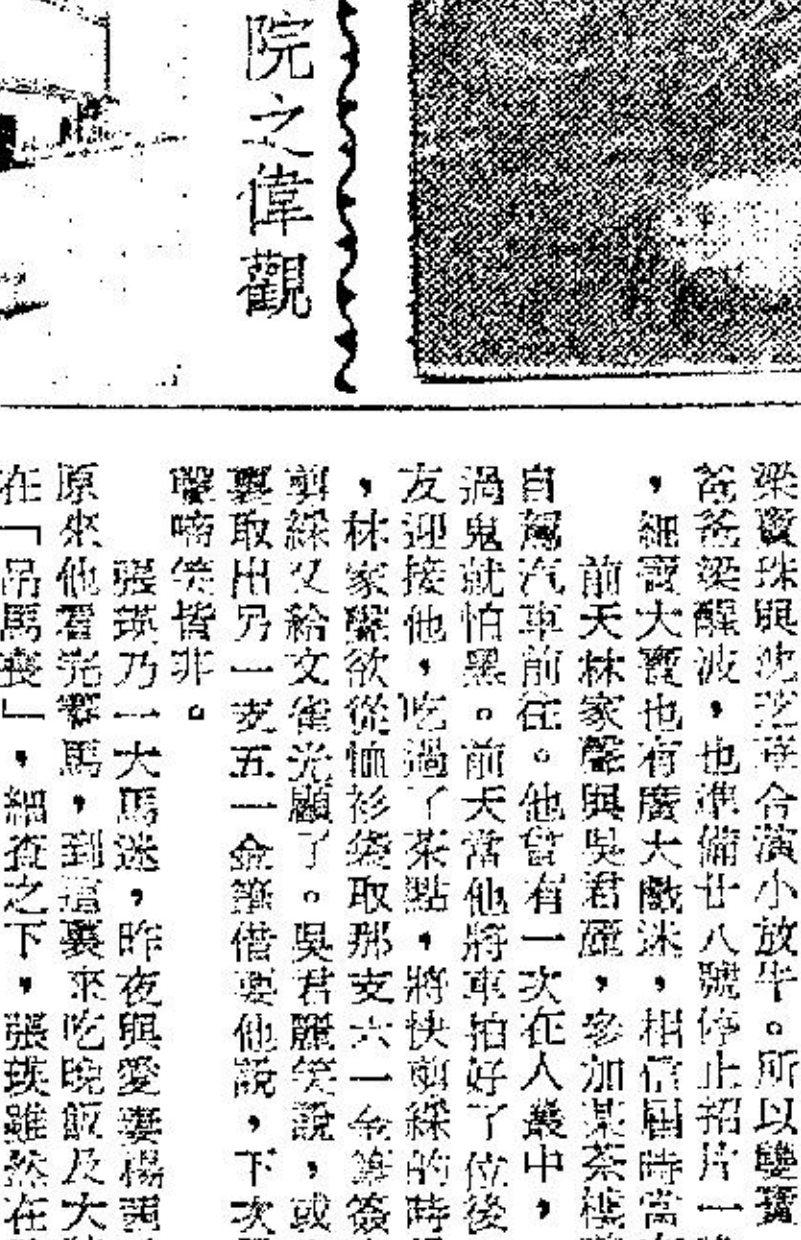 院之偉觀
梁寶珠與沈芝華合演小放牛。所以雙寶
爸爸梁醒波,也準備廿八號停止招片一
,細寶大寶也有廣大戲迷,相信屆時當
前天林家聲與吳君麗,參加某茶樓
自駕汽車前往。他曾有一次在人叢中,
過鬼就怕黑。前天當他將車泊好了位後
友迎接他,吃過了茶點,將快剪綵的時
,林家聲欲從恤衫袋取那支六一金筆簽
剪綵又給文雀光顧了。吳君麗笑說,或
裏取出另一支五一金筆借要他說,下次
聲啼笑皆非。
張瑛乃一大馬迷,昨夜與愛妻楊茜
原來他看完賽馬,到這裏來吃晚飯及大
在「吊馬喪」,細查之下,張瑛雖然在